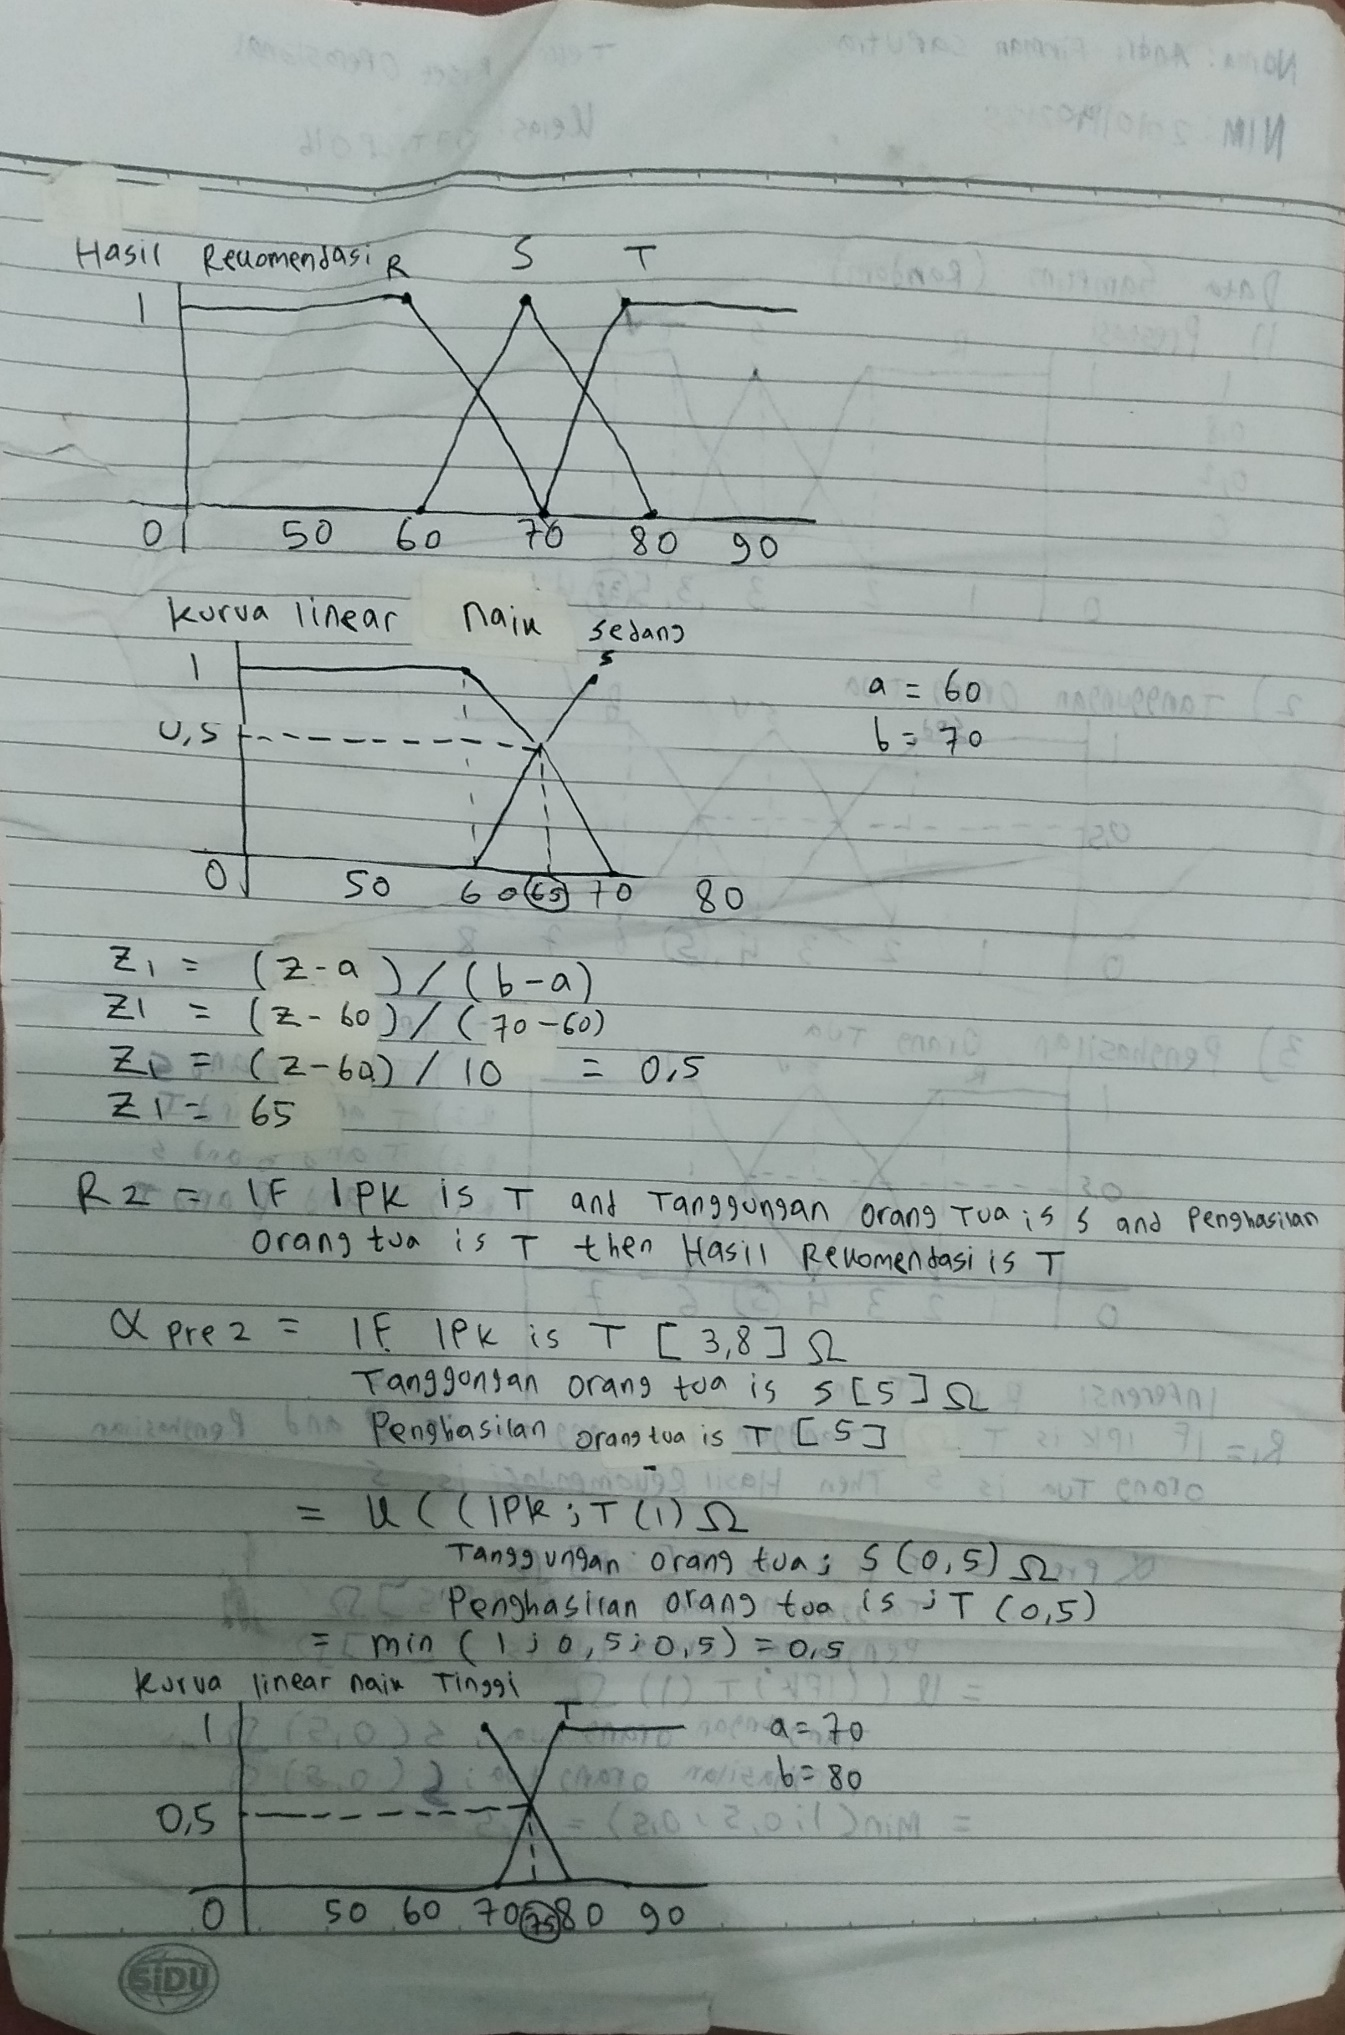 Hasil Rekomendasi R S T
1
0 50 60 70 80 90
kurva linear naik sedang
1 S
a = 60
0,5
b = 70
0 50 60 65 70 80
Z1 = (Z-a) / (b-a)
Z1 = (Z-60) / (70-60)
Z1 = (Z-60) / 10 = 0,5
Z1 = 65
R2 = IF IPK is T and Tanggungan orang Tua is S and Penghasilan
orang tua is T then Hasil Rekomendasi is T
α pre2 = IF IPK is T [3,8] Ω
Tanggongan orang tua is S [5] Ω
Penghasilan orang tua is T [5]
= U ((IPK ; T (1) Ω
Tanggungan orang tua ; S (0,5) Ω
Penghasilan orang tua is ; T (0,5)
= min (1 ; 0,5 ; 0,5) = 0,5
kurva linear naik Tinggi
T
1 a = 70
b = 80
0,5
0 50 60 70 75 80 90
SiDU